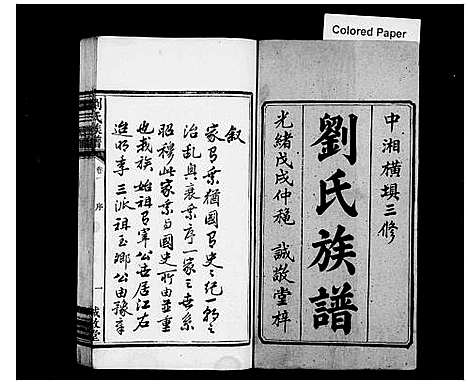 Colored Paper
中湘橫塤三修
劉氏族譜
光緒戊戌仲穐 誠敬堂梓
敘
家乘猶國史之紀一朝之
治亂興衰乘序一家之世系
昭穆此家乘與國史所由並重
也我族始祖軍公世居江右
迨明季三派祖玉卿公由豫章
劉氏族譜
卷
序
一
誠敬堂